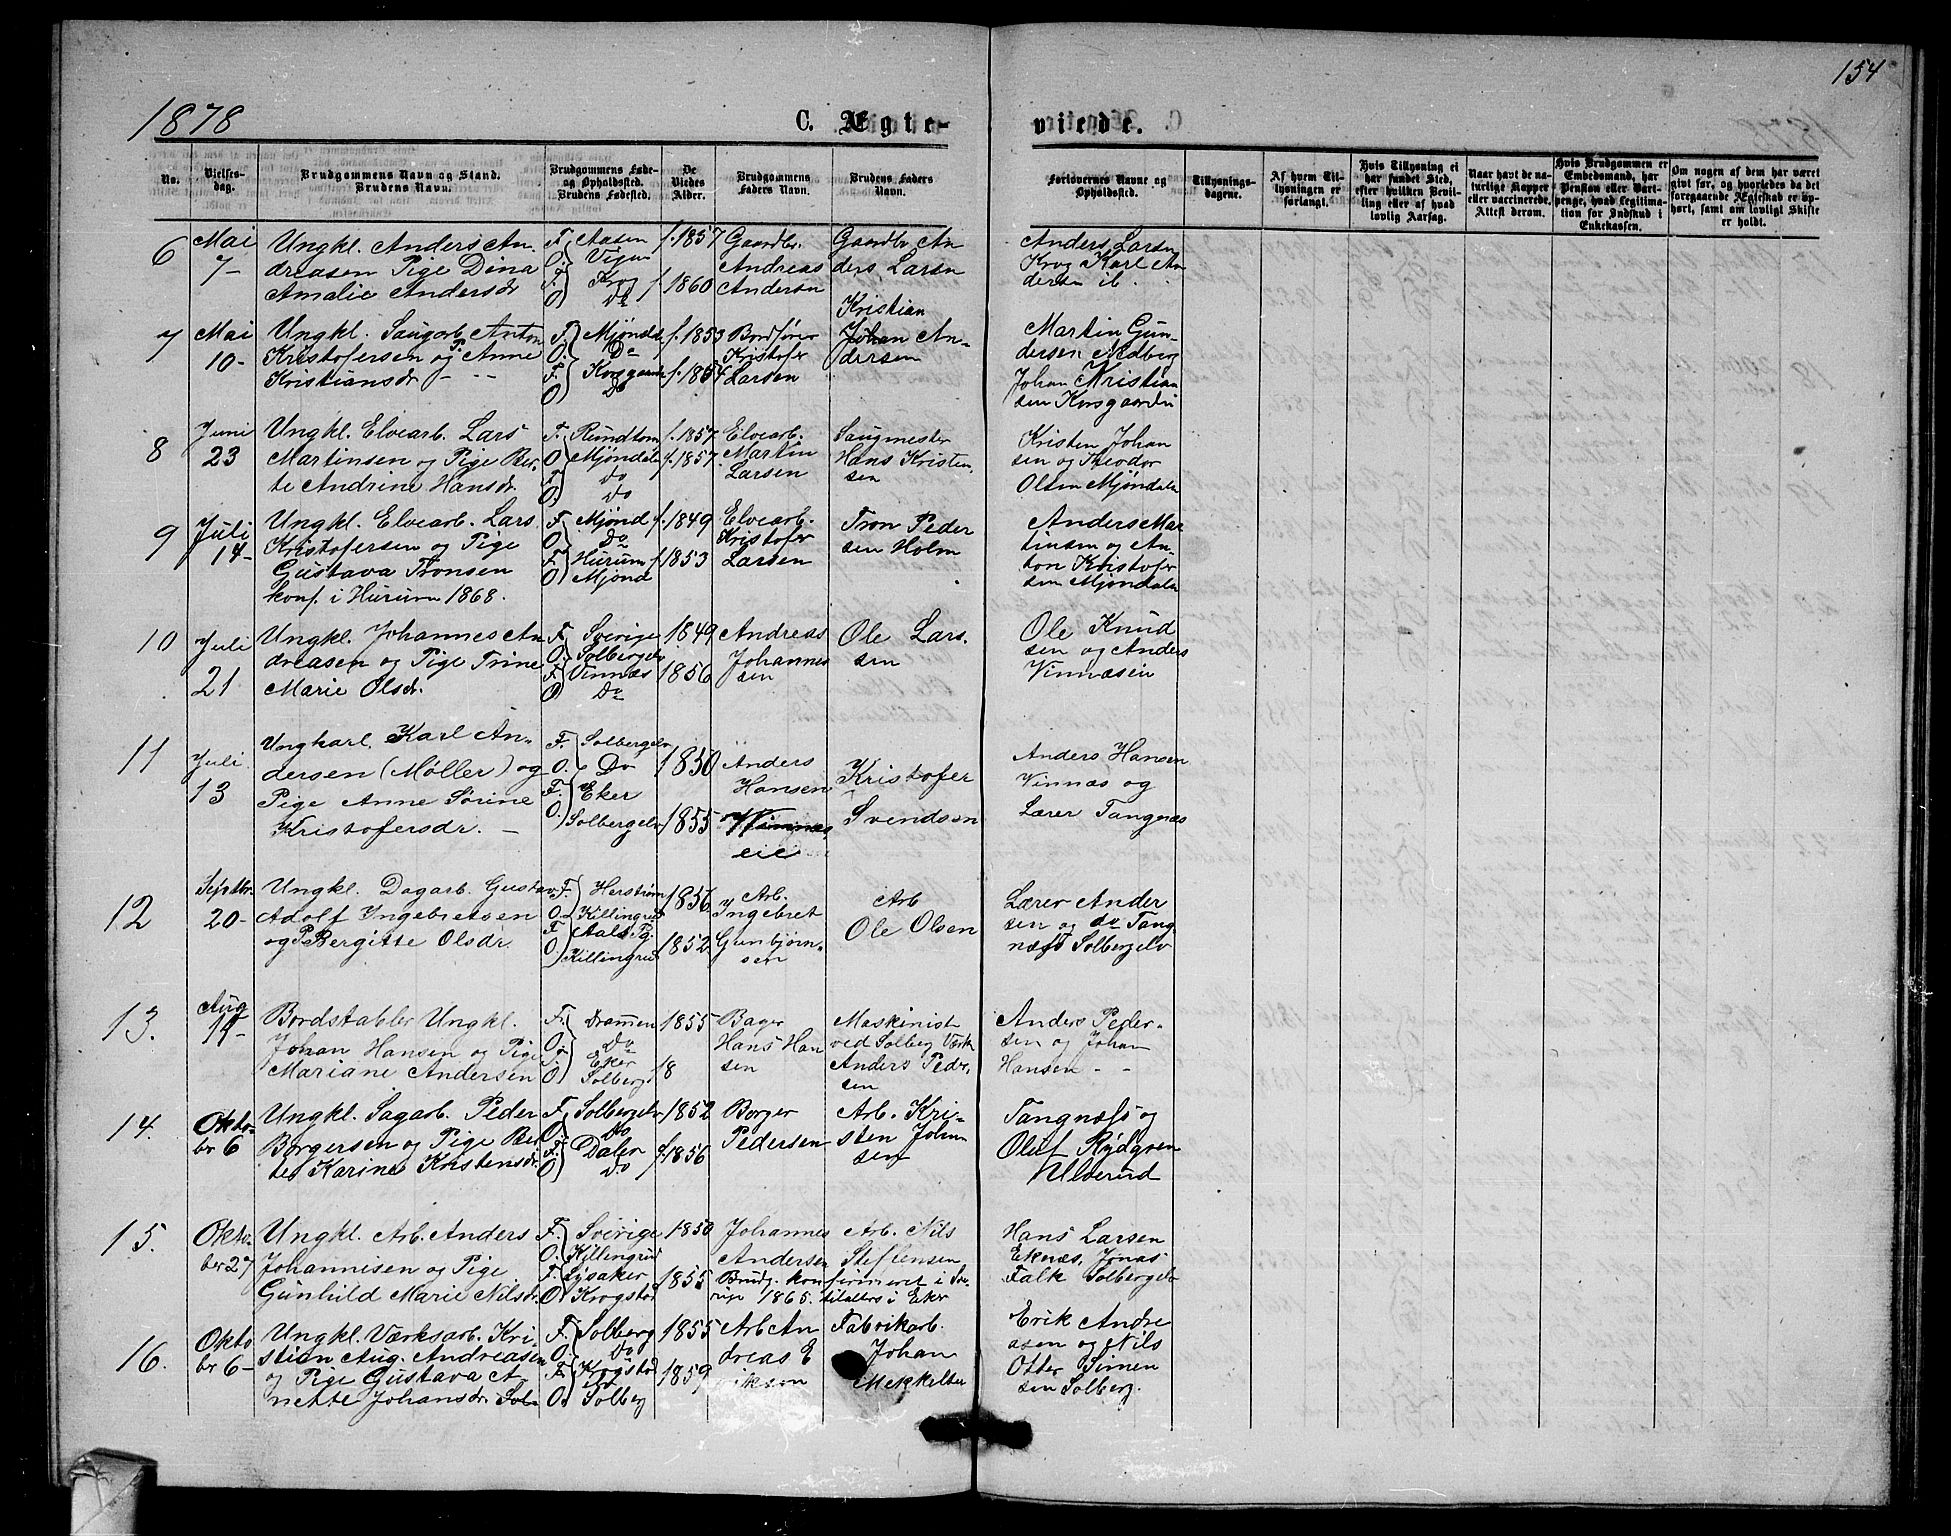 154
1878
C. Ægte-
viede.
No.
Vielses-
dag.
Brudgommens Navn og Stand.
Brudens Navn.
Brudgommens Føde-
og Opholdssted.
Brudens Fødested.
De
Viedes
Alder.
Brudgommens
Faders Navn.
Brudens Faders
Navn.
Forlovernes Navne og
Opholdssted.
Tillysnings-
dagene.
Af hvem Til-
lysningen er
forlangt.
Hvis Tillysning ei
har fundet Sted,
efter hvilken Bevil-
ling eller af hvad
lovlig Aarsag.
Naar havt de na-
turlige Kopper
eller vaccinerede.
Attest derom.
Hvis Brudgommen er
Embedsmand, har
Pension eller Vart-
penge, hvad Legitima-
tion for Indskud i
Enkekassen.
Om nogen af dem har været
gift før, og hvorledes da det
foregaaende Ægteskab er op-
hørt, samt om lovligt Skifte
er holdt.
6
Mai
7-
Ungkl. Anders An-
dreasen Pige Dina
Amalie Andersdr
F. Aasen
O.
F. Krog
O. Do
f. 1857
f. 1860
Gaardbr.
Andreas
Andersen
Gaardbr An
ders Larsn
Anders Larsn
Krog Karl An
dersen ib.
7
Mai
10-
Ungkl. Saugarb. Anton
Kristofersen og P. Anne
Kristiansdr
F. Mjøndal
O. Do
F. Korsgaarden
O. Do
f. 1853
f. 1854
Bordfører
Kristofer
Larsen
Kristian
Johan An-
dersen
Martin Gun-
dersen Nedberg
Johan Kristian
sen Korsgaarden
8
Juni
23
Ungkl. Elvearb. Lars
Martinsen og Pige Ber-
te Andrine Hansdr.
F. Rundtom
O. Mjøndalen
F. Do
O. Do
f. 1857
f. 1857
Elvearb.
Martin
Larsen
Saugmester
Hans Kristen
sen
Kristen Johan
sen og Teodor
Olsen Mjøndalen
9
Juli
14-
Ungkl. Elvearb. Lars
Kristofersen og Pige
Gustava Tronsen
konf. i Hurum 1868.
F. Mjønd
O. Do
F. Hurum
O. Mjønd
f. 1849
f. 1853
Elvearb.
Kristofer
Larsen
Tron Peder
sen Holm
Anders Mar
tinsen og An-
ton Kristofer
sen Mjøndalen
10
Juli
21
Ungkl. Johannes An
dreasen og Pige Trine
Marie Olsdr.
F. Sverige
O. Solbergelv
F. Vinnæs
O Do
1849
1856
Andreas
Johannes
sen
Ole Lars.
sen
Ole Knud
sen og Anders
Vinnæseie
11
Juli
13
Ungkarl. Karl An-
dersen (Møller) og
Pige Anne Sørine
Kristofersdr. -
F. Solbergelv
O. Do
F. Eker
O. Solbergelv
1850
1855
Anders
Hansen
Vinnæs
eie
Kristofer
Svendsen
Anders Hansen
Vinnæs og
Lærer Tangnæs
12
Septbr.
20-
Ungkl. Dagarb. Gustav
Adolf Ingebretsen
og P. Bergitte Olsdr.
F. Herstrøm
O. Killingrud
F. Aals Pg.
O. Killingrud
1856
1852
Arb.
Ingebret
Gunbjørn-
sen
Arb
Ole Olsen
Lærer Ander
sen og do Tang
næss Solbergelv
13.
Aug
11-
Bordstabler Ungkl.
Johan Hansen og Pige
Mariane Andersen
F. Drammen
O. Do
F. Eker
O. Solberg
1855
18
Bager
Hans Han
sen
Maskinist
ved Solberg Værk
Anders Peder-
sen
Anders Peder-
sen og Johan
Hansen - -
14.
Okto-
br 6
Ungkl. Sagarb. Peder
Borgersen og Pige Ber
tea Karine Kristensdr.
F. Solbergelv
O. Do
F. Dalen
O. Do
1852
f. 1856
Borger
Pedersen
Arb. Kri-
sten Johan
sen
Tangnæss og
Oluf Rydgren
Ulverud
15.
Okto-
ber 27
Ungkl. Arb. Anders
Johannisen og Pige
Gunhild Marie Nilsdr.
F. Sverige
O. Killingrud
F. Lysaker
O. Krogstad
1850
1855
Johannes
Andersen
Arb. Nils
Steffensen
Brudg. konfirmeret i Sve-
rige 1865. tilaltrs i Eker
Hans Larsen
Eknæs, Jonas
Falk Solbergelv
16.
Okto
br 6-
Ungkl. Værksarb. Kri-
stian Aug. Andreasen
og Pige Gustava A-
nette Johansdr. Sol-
F. Solberg
O. Do
F. Krogstad
O. Solberg
1855
1859
Arb An
dreas E
riksen
Fabrikarb.
Johan
Mekkelsen
Erik Andre
asen og Nils
Otter Simen
sen Solberg.